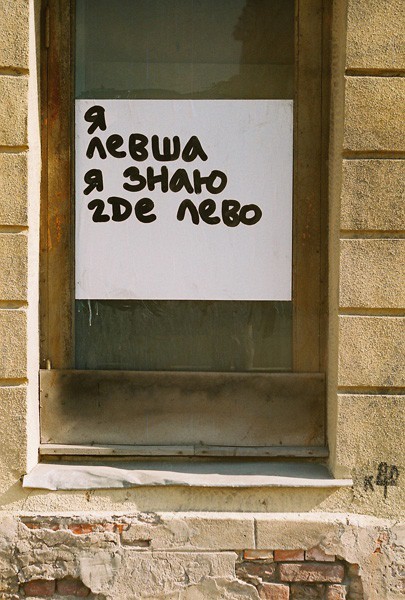 я
левша
я знаю
где лево